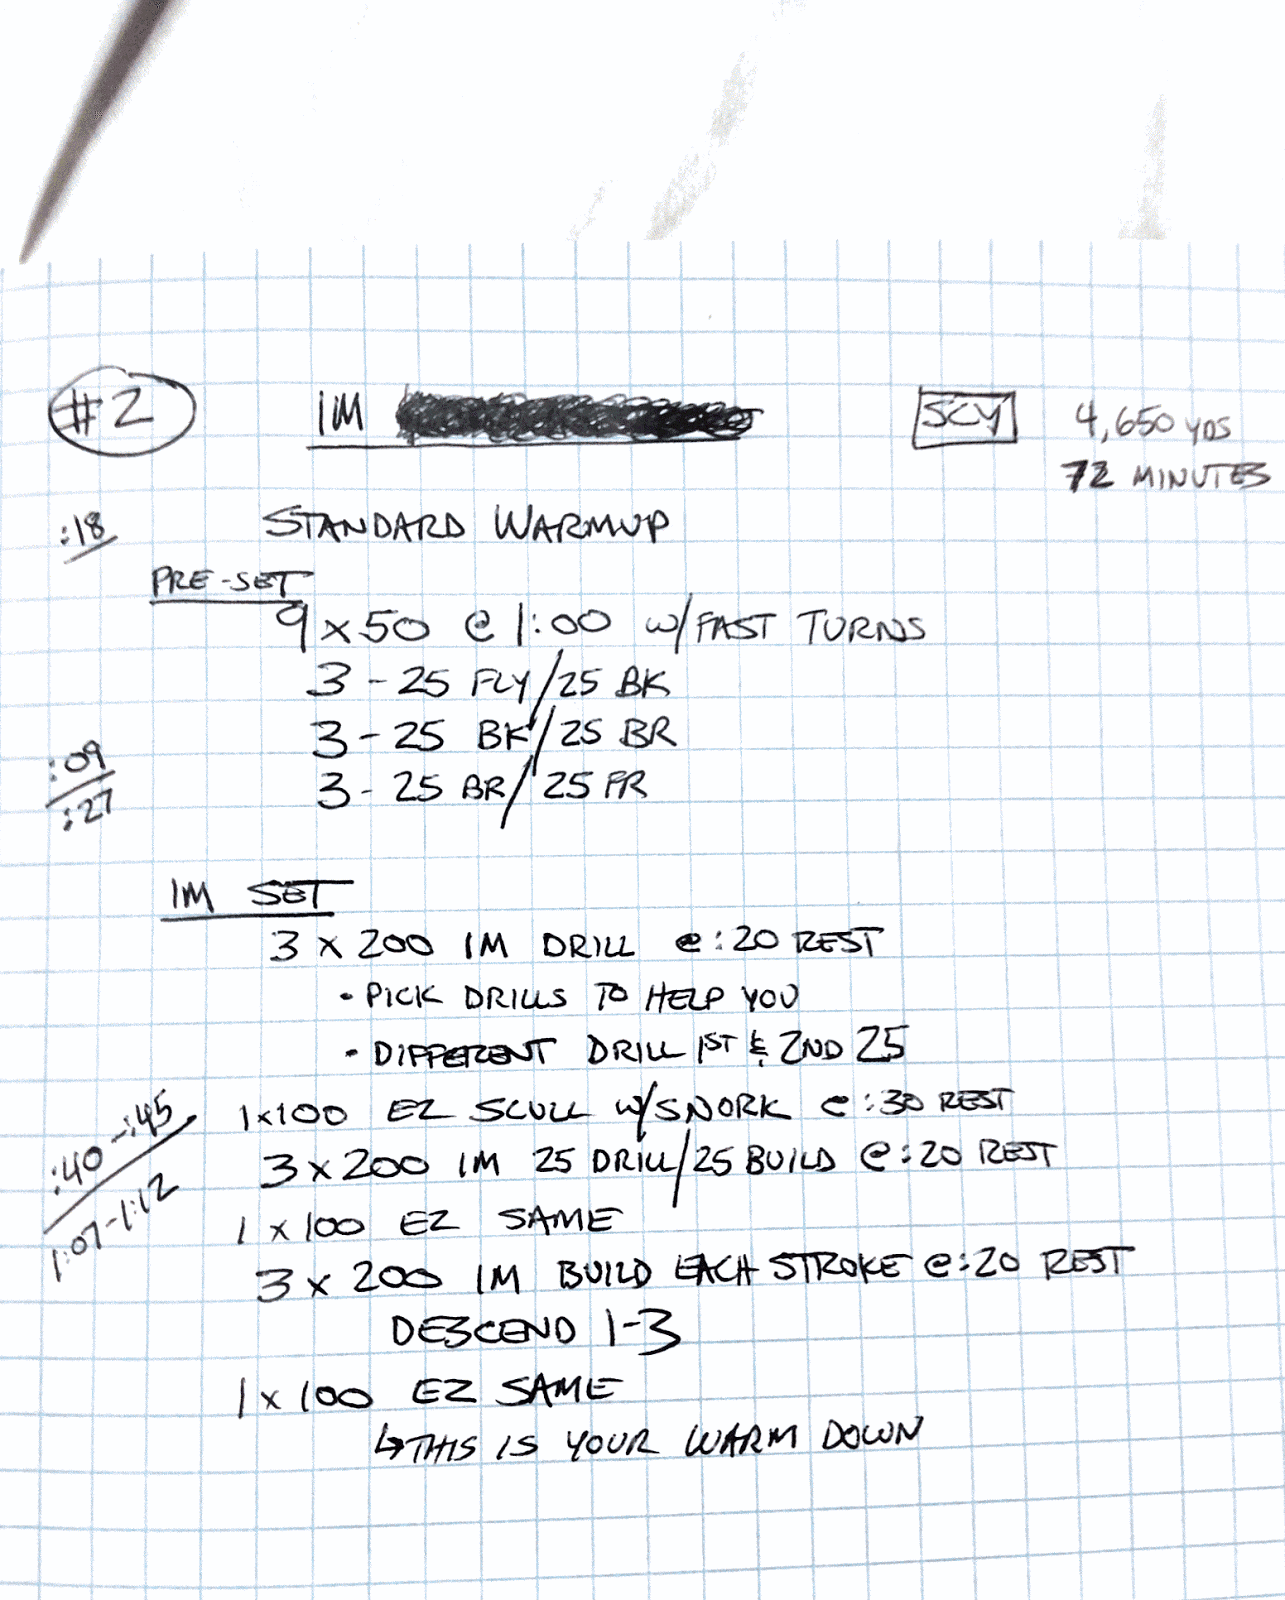 #2
IM
SCY
4,650 YDS
72 MINUTES
:18
STANDARD WARMUP
PRE-SET
9 x 50 @ 1:00 W/FAST TURNS
3 - 25 FLY/25 BK
3 - 25 BK/25 BR
:09
3 - 25 BR/25 FR
:27
IM SET
3 x 200 IM DRILL @ :20 REST
• PICK DRILLS TO HELP YOU
• DIFFERENT DRILL 1ST & 2ND 25
1x100 EZ SCULL W/SNORK @ :30 REST
:40 - :45
3 x 200 IM 25 DRILL/25 BUILD @ :20 REST
1:07-1:12
1 x 100 EZ SAME
3 x 200 IM BUILD EACH STROKE @ :20 REST
DESCEND 1-3
1 x 100 EZ SAME
↳THIS IS YOUR WARM DOWN